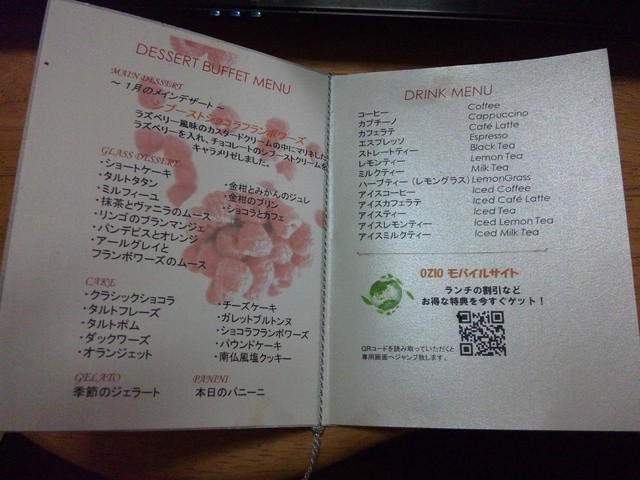 DESSERT BUFFET MENU
MAIN DESSERT
～ 1月のメインデザート ～
シブーストショコラフランボワーズ
ラズベリー風味のカスタードクリームの中にマリネした
ラズベリーを入れ、チョコレートのシブーストクリームを
キャラメリゼしました。
GLASS DESSERT
・ショートケーキ
・タルトタタン
・ミルフィーユ
・抹茶とヴァニラのムース
・リンゴのブランマンジェ
・パンデピスとオレンジ
・アールグレイと
フランボワーズのムース
・金柑とみかんのジュレ
・金柑のプリン
・ショコラとカフェ
CAKE
・クラシックショコラ
・タルトフレーズ
・タルトポム
・ダックワーズ
・オランジェット
・チーズケーキ
・ガレットブルトンヌ
・ショコラフランボワーズ
・パウンドケーキ
・南仏風塩クッキー
GELATO
季節のジェラート
PANINI
本日のパニーニ
DRINK MENU
コーヒー Coffee
カプチーノ Cappuccino
カフェラテ Café Latte
エスプレッソ Espresso
ストレートティー Black Tea
レモンティー Lemon Tea
ミルクティー Milk Tea
ハーブティー（レモングラス） LemonGrass
アイスコーヒー Iced Coffee
アイスカフェラテ Iced Café Latte
アイスティー Iced Tea
アイスレモンティー Iced Lemon Tea
アイスミルクティー Iced Milk Tea
OZIO モバイルサイト
ランチの割引など
お得な特典を今すぐゲット！
QRコードを読み取っていただくと
専用画面へジャンプ致します。